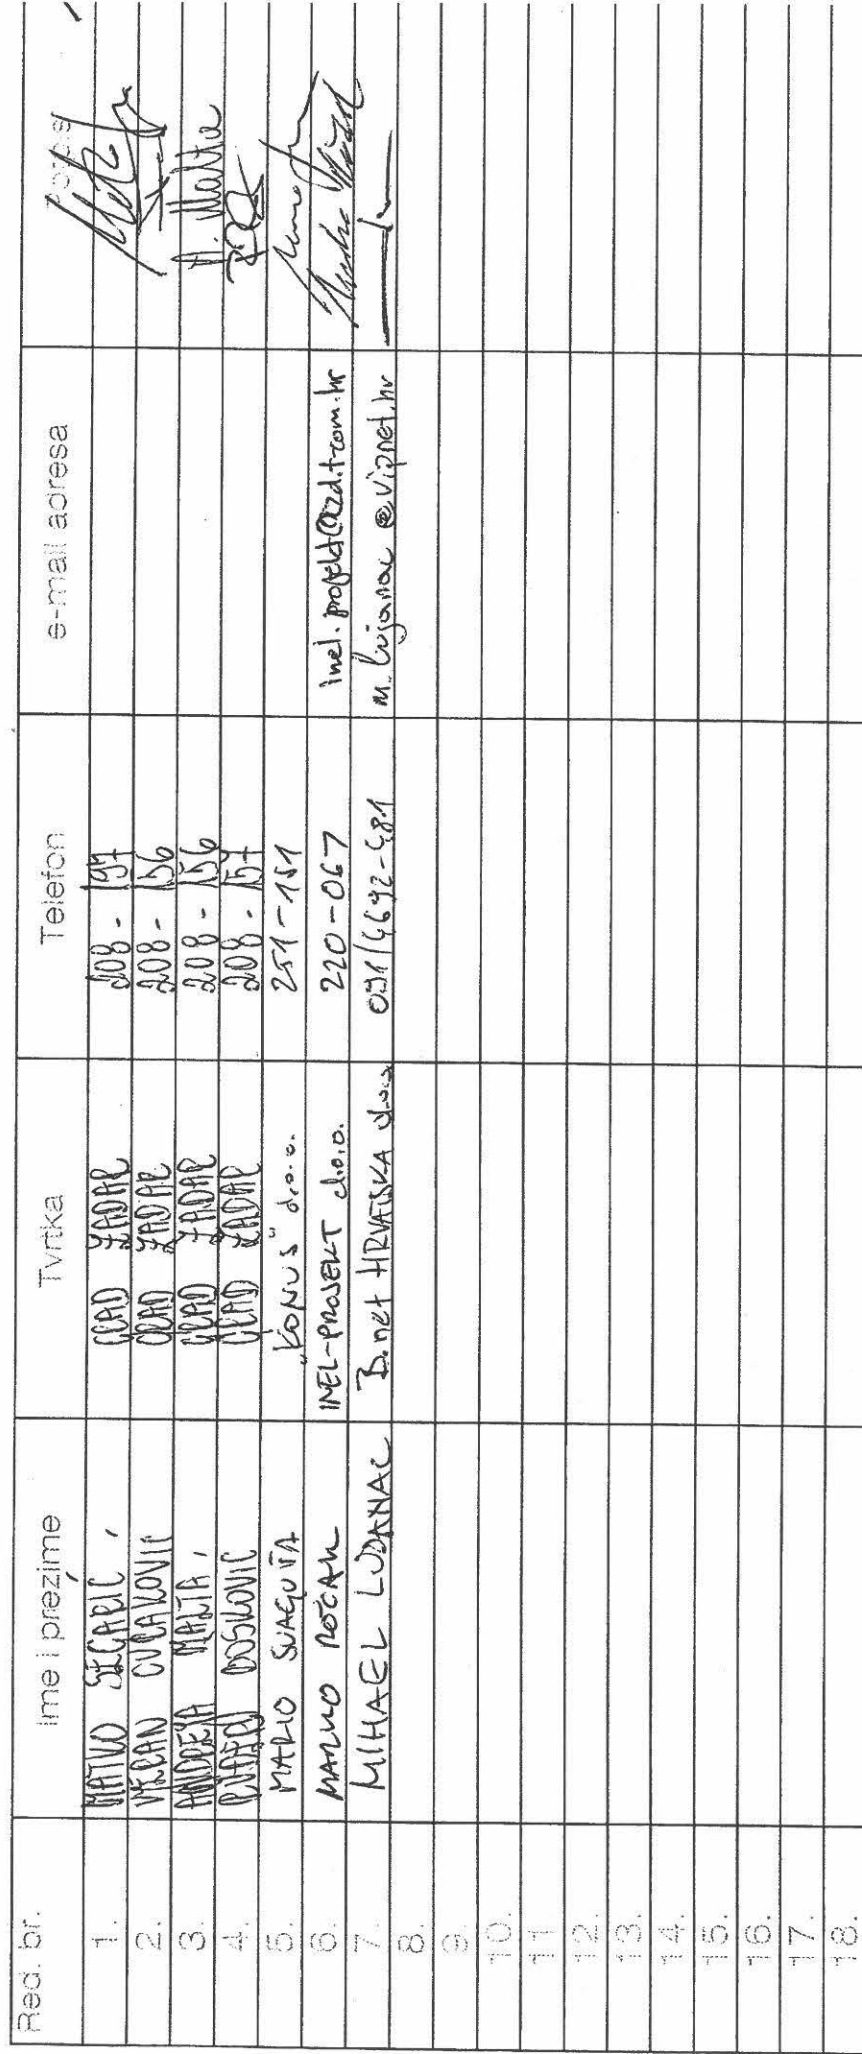 Red. br. Ime i prezime Tvrtka Telefon e-mail adresa Potpis
1. MATKO SEGARIĆ, GRAD ZADAR 208-197
2. VERAN GRAD ZADAR 208-156
3. ANDREA MALTA, GRAD ZADAR 208-156 A. Malta
4. BOŠKOVIĆ GRAD ZADAR 208-157
5. MARIO "KONUS" d.o.o. 251-151
6. MARKO ROČAK INEL-PROJEKT d.o.o. 220-067 inel.projekt@zd.t-com.hr
7. MIHAEL LUJANAC B.net HRVATSKA d.o.o. m.lujanac@vipnet.hr
8.
9.
10.
11.
12.
13.
14.
15.
16.
17.
18.